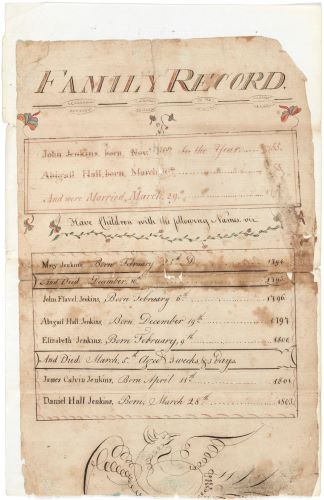 FAMILY RECORD.
John Jenkins, born, Nov. in the Year
Abigail Hall, born, March
And were Married, March, 29th
Have Children with the following Names. viz
Mary Jenkins, Born February D.
And Died December,
John Flavel Jenkins, Born February 6th 1796
Abigail Hall Jenkins, Born December 19th 1797
Elizabeth Jenkins, Born February, 9th
And Died, March, 5th Aged 3 weeks & days.
James Calvin Jenkins, Born April
Daniel Hall Jenkins, Born, March 28th 1803